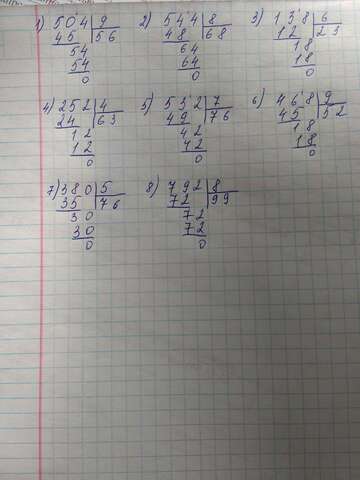 1) 504 9 2) 544 8 3) 138 6
45 56 48 68 12 23
54 64 18
54 64 18
0 0 0
4) 252 4 5) 532 7 6) 468 9
24 63 49 76 45 52
12 42 18
12 42 18
0 0 0
7) 380 5 8) 792 8
35 76 72 99
30 72
30 72
0 0